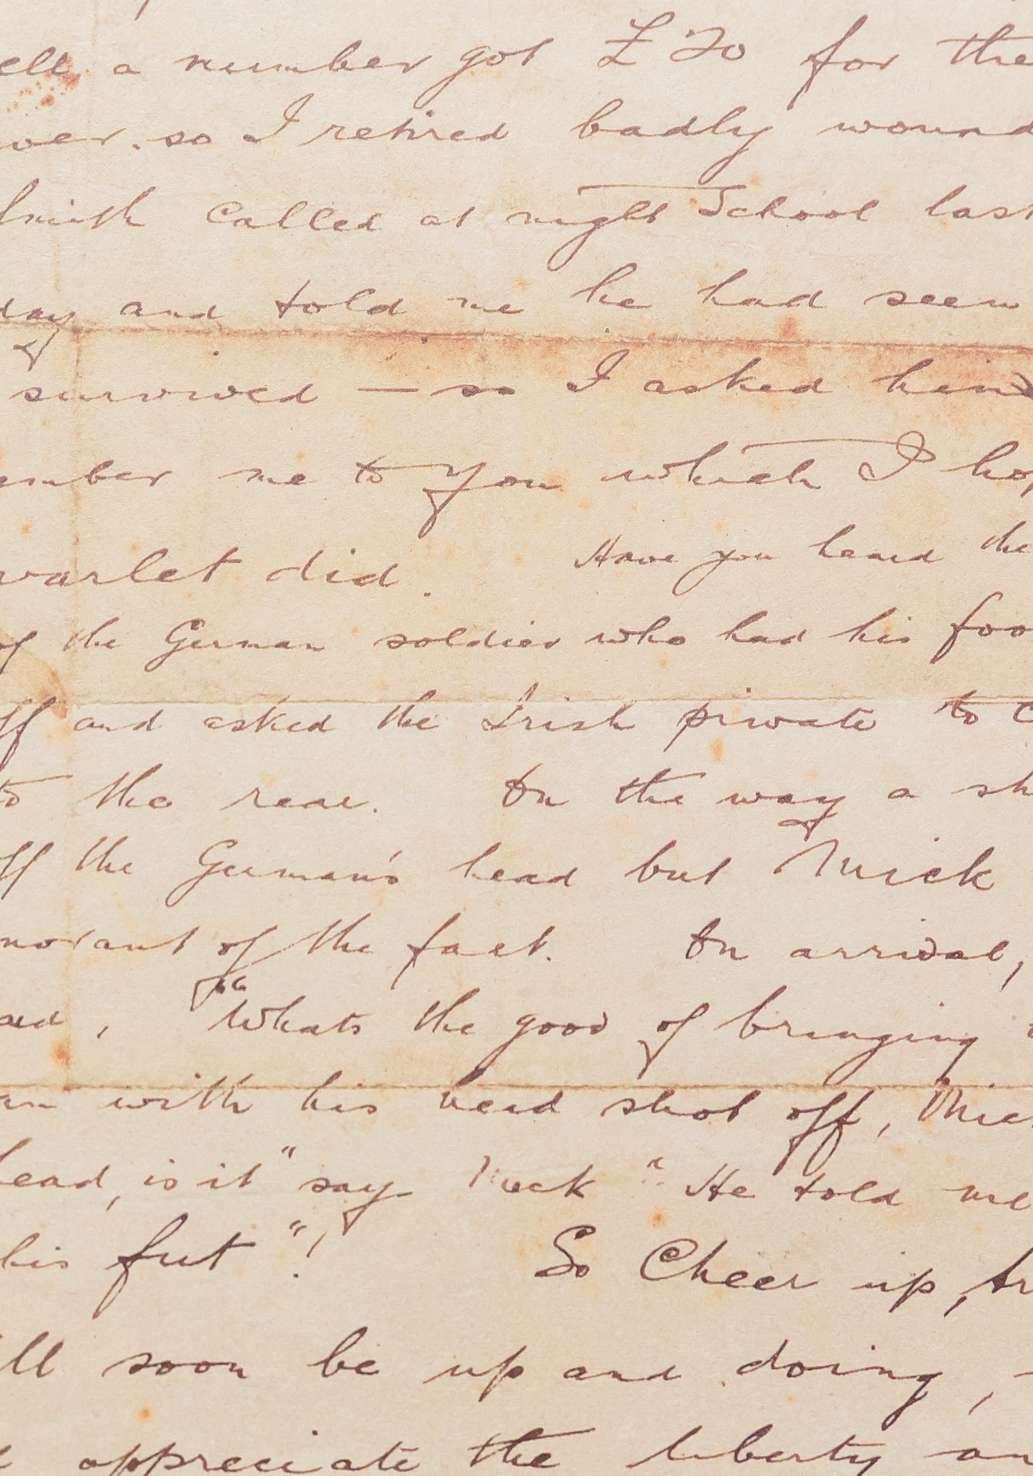 ell, a number got £20 for the
over. so I retired badly wound
Smith called at night School last
day and told me he had seen
survived — so I asked him
ember me to you which I hop
varlet did. Have you heard the
of the German soldier who had his foo
ff and asked the Irish private to c
to the rear. On the way a sh
ff the German's head but Mick
norant of the fact. On arrival,
aid, "Whats the good of bringing a
an with his head shot off, Mic
head, is it" say Mick "He told me
his fut"! So Cheer up, tr
'll soon be up and doing,
appreciate the liberty an